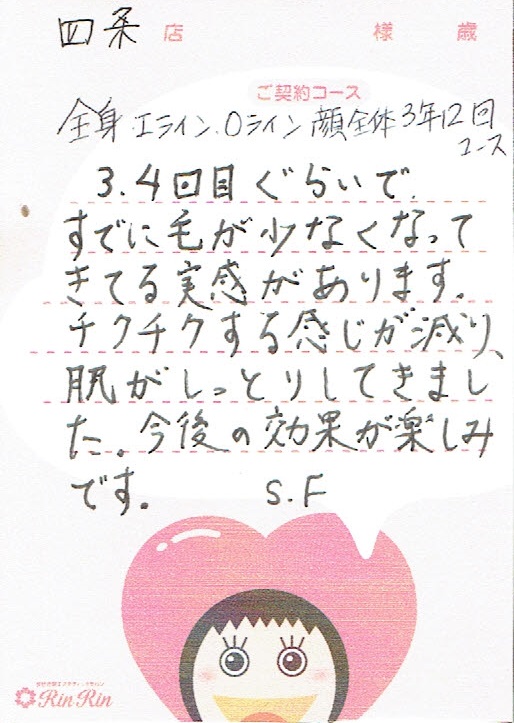 四条 店 様 歳
ご契約コース
全身・Iライン.Oライン 顔全体 3年12回
コース
3.4回目ぐらいで、
すでに毛が少なくなって
きてる実感があります。
チクチクする感じが減り、
肌がしっとりしてきまし
た。今後の効果が楽しみ
です。 S.F
RinRin